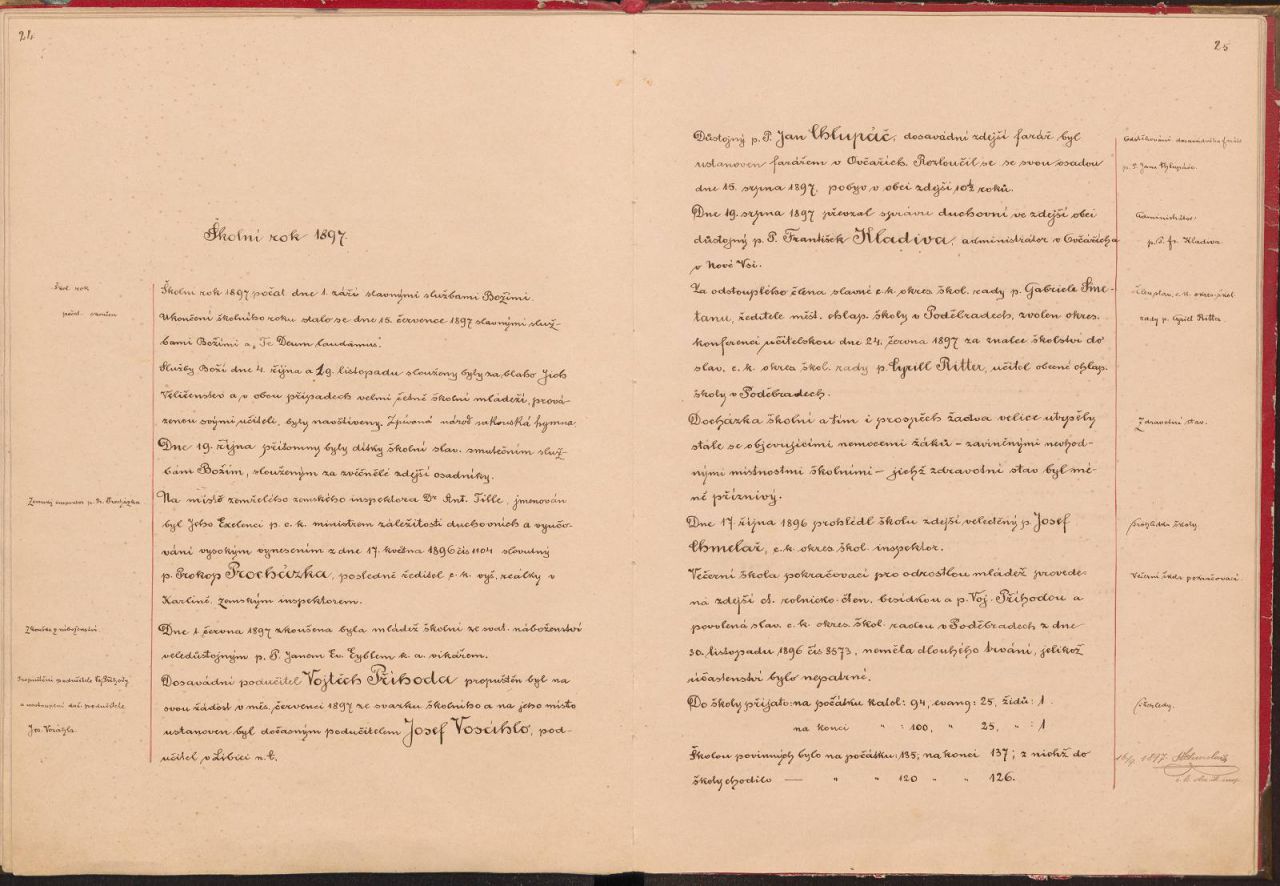 24
Školní rok 1897.
Škol. rok
Školní rok 1897 počat dne 1. září slavnými službami Božími.
počat. skončen
Ukončení školního roku stalo se dne 15. července 1897 slavnými služ-
bami Božími a „Te Deum laudamus“.
Služby Boží dne 4. října a 19. listopadu slouženy byly za blaho Jich
Veličenstev a v obou případech velmi četně školní mládeží, prová-
zenou svými učiteli, byly navštíveny. Zpívána národ. rakouská hymna.
Dne 19. října přítomny byly dítky školní slav. smutečním služ-
bám Božím, slouženým za zvěčnělé zdejší osadníky.
Zemský inspektor p. Pr. Procházka
Na místo zemřelého zemského inspektora Dr Ant. Tille, jmenován
byl Jeho Excelencí p. c. k. ministrem záležitostí duchovních a vyučo-
vání vysokým vynesením z dne 17. května 1896 čís 1104 slovutný
p. Prokop Procházka, posledně ředitel c. k. vyš. reálky v
Karlíně, zemským inspektorem.
Zkouška z náboženství
Dne 1. června 1897 zkoušena byla mládež školní ze svat. náboženství
veledůstojným p. P. Janem Ev. Eyblem k. a. vikářem.
Propuštění podučitele Voj. Příhody
Dosavádní podučitel Vojtěch Příhoda propuštěn byl na
a ustanovení doč. podučitele
svou žádost v měs. červenci 1897 ze svazku školního a na jeho místo
Jos. Vosáhla.
ustanoven byl dočasným podučitelem Josef Vosáhlo, pod-
učitel v Libici n. C.
25
Důstojný p. P. Jan Chlupáč, dosavádní zdejší farář byl
dosavádního faráře
ustanoven farářem v Ovčárích. Rozloučil se se svou osadou
p. P. Jana Chlupáče.
dne 15. srpna 1897, pobyv v obci zdejší 10½ roků.
Dne 19. srpna 1897 převzal správu duchovní ve zdejší obci
Administrátor
důstojný p. P. František Kladiva, administrátor v Ovčárích a
p. P. Fr. Kladiva
v Nové Vsi.
Za odstouplého člena slavné c. k. okres. škol. rady p. Gabriele Sme-
Člen slav. c. k. okres. škol.
tanu, ředitele měšt. chlap. školy v Poděbradech, zvolen okres.
rady p. Cyrill Ritter
konferencí učitelskou dne 24. června 1897 za znalce školství do
slav. c. k. okres. škol. rady p. Cyrill Ritter, učitel obecné chlap.
školy v Poděbradech.
Docházka školní a tím i prospěch žactva velice utrpěly
Zdravotní stav.
stále se objevujícími nemocemi žáků – zaviněnými nevhod-
nými místnostmi školními – jichž zdravotní stav byl mé-
ně příznivý.
Dne 17. října 1896 prohlédl školu zdejší velectěný p. Josef
Prohlídka školy.
Chmelař, c. k. okres. škol. inspektor.
Večerní škola pokračovací pro odrostlou mládež provede-
Večerní škola pokračovací.
ná zdejší ct. rolnicko-čten. besídkou a p. Voj. Příhodou a
povolená slav. c. k. okres. škol. radou v Poděbradech z dne
30. listopadu 1896 čís 8573, neměla dlouhého trvání, jelikož
účastenství bylo nepatrné.
Do školy přijato: na počátku katol: 94, evang: 25, židů: 1
Přehledy.
na konci „ : 100, „ 25, „ : 1
Školou povinných bylo na počátku: 135; na konci 137; z nichž do
1897 Chmelař
školy chodilo — „ „ 120 „ „ 126.